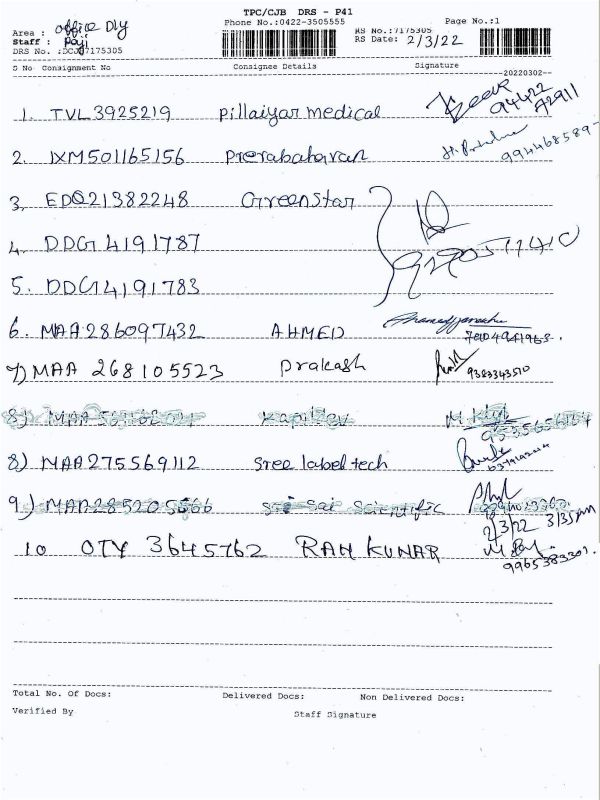 TPC/CJB DRS - P41
Phone No.:0422-3505555
Page No.:1
Area : office Dly
Staff : Raji
DRS No. :DCJ7175305
RS No.:7175305
RS Date: 2/3/22
S No Consignment No Consignee Details Signature
20220302--
1. TVL3925219 Pillaiyar medical
94422
72911
2. IXM501165156 Prerabaharan
994468589-
3. EDQ21382248 Greenstar
4. DDG4191787
5. DDG4191783
6. MAA286097432 AHMED
7) MAA 268105523 Prakash 9383343510
8) Kapildev
8) MAA275569112 Sree label tech
9.) MAA285205566 Sri Sai Scientific
2/3/22 3/35pm
10 OTY 3645762 RAM KUNAR
9965383301.
Total No. Of Docs: Delivered Docs: Non Delivered Docs:
Verified By Staff Signature